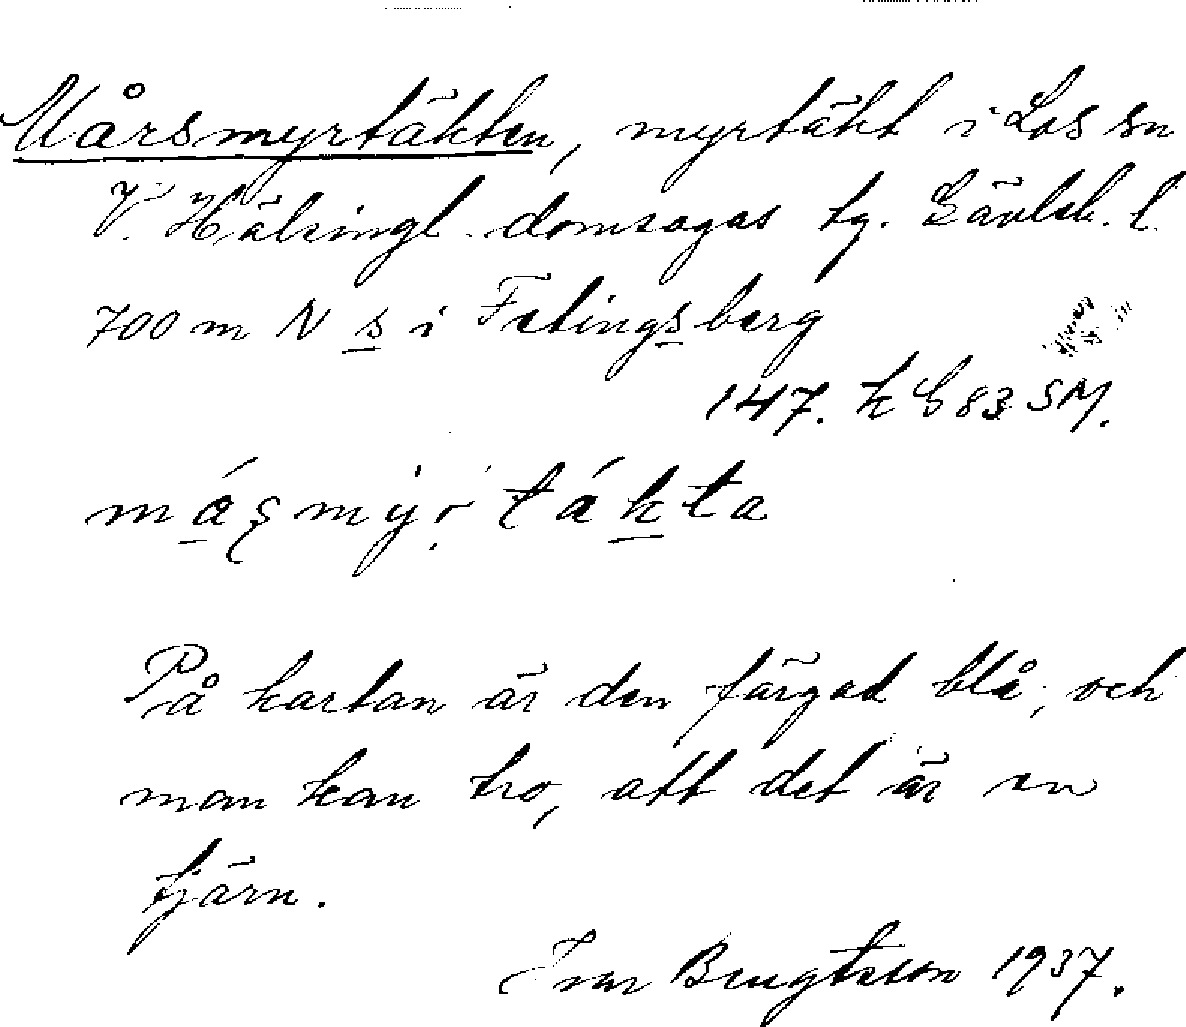 Mårsmyrtäkten, myrtäkt i Los sn
V. Hälsingl. domsagas tg. Gävleb. l.
700 m N s i Fetingsberg
147. k G 83 SM.
På kartan är den färgad blå, och
man kan tro, att det är en
tjärn.
Ivar Bengtsson 1937.